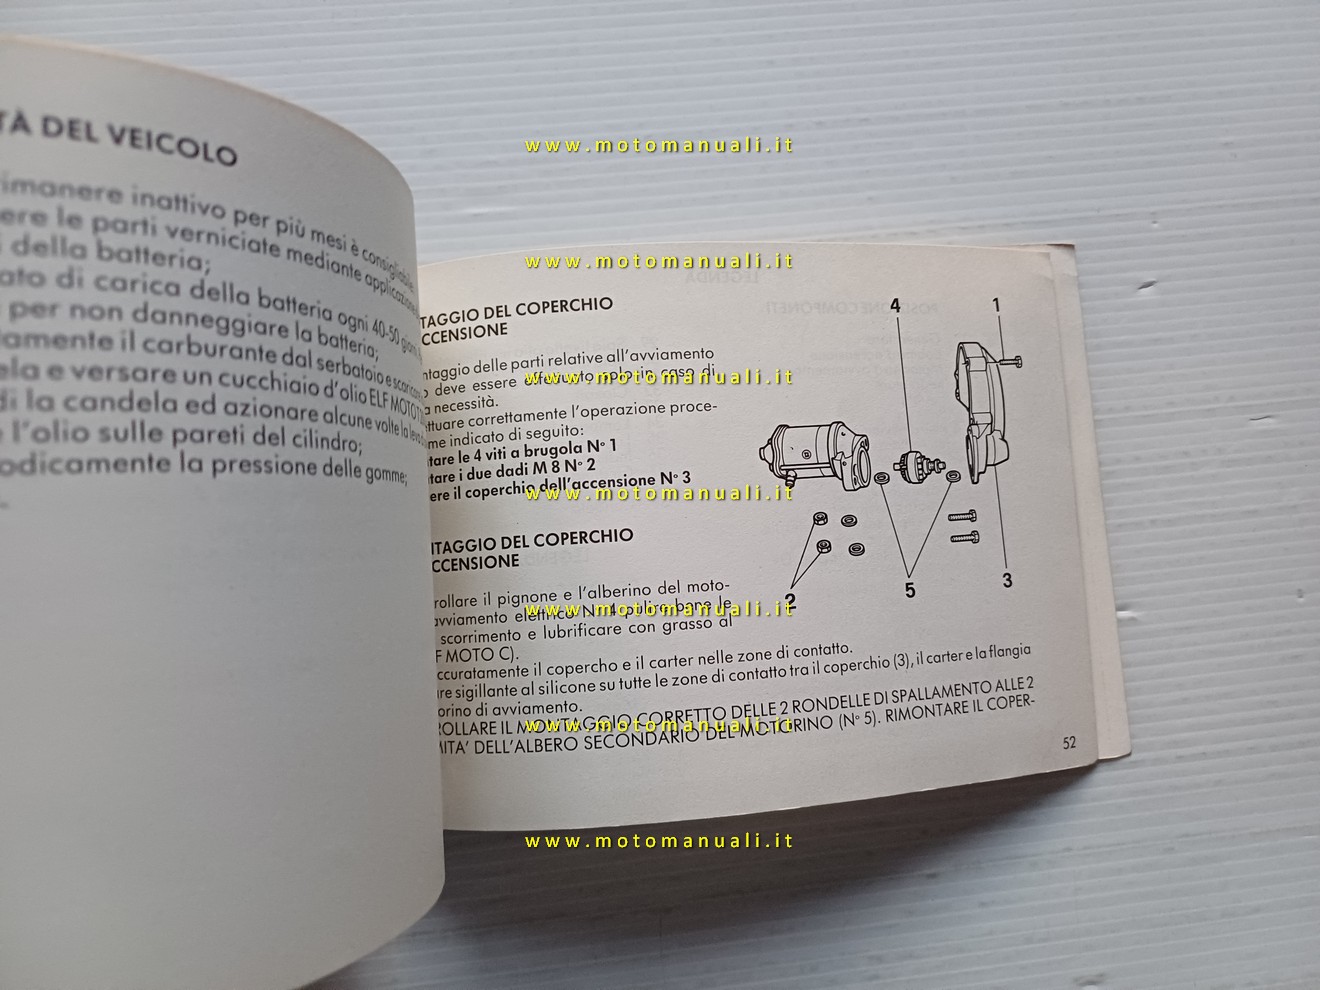 TÀ DEL VEICOLO
rimanere inattivo per più mesi è consigliabile:
ere le parti verniciate mediante applicazione
della batteria;
ato di carica della batteria ogni 40-50 giorni
per non danneggiare la batteria;
amente il carburante dal serbatoio e
ela e versare un cucchiaio d'olio ELF MOTO
di la candela ed azionare alcune volte la
l'olio sulle pareti del cilindro;
odicamente la pressione delle gomme;
www.motomanuali.it
www.motomanuali.it
TAGGIO DEL COPERCHIO
CCENSIONE
ntaggio delle parti relative all'avviamento
o deve essere effettuato solo in caso di
www.motomanuali.it
a necessità.
ttuare correttamente l'operazione proce-
me indicato di seguito:
tare le 4 viti a brugola N° 1
tare i due dadi M 8 N° 2
ere il coperchio dell'accensione N° 3
www.motomanuali.it
4
1
2
5
3
ITAGGIO DEL COPERCHIO
CCENSIONE
rollare il pignone e l'alberino del moto-
avviamento elettrico N° 4 pulire bene le
www.motomanuali.it
scorrimento e lubrificare con grasso al
F MOTO C).
ccuratamente il copercho e il carter nelle zone di contatto.
re sigillante al silicone su tutte le zone di contatto tra il coperchio (3), il carter e la flangia
orino di avviamento.
OLLARE IL MONTAGGIO CORRETTO DELLE 2 RONDELLE DI SPALLAMENTO ALLE 2
www.motomanuali.it
ITA' DELL'ALBERO SECONDARIO DEL MOTORINO (N° 5). RIMONTARE IL COPER-
52
www.motomanuali.it